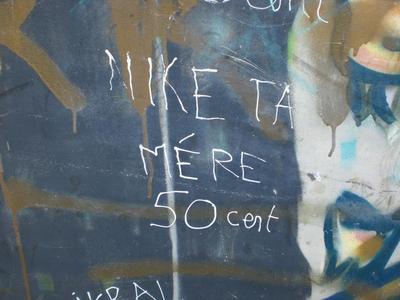 NIKE TA
MÉRE
50 cent